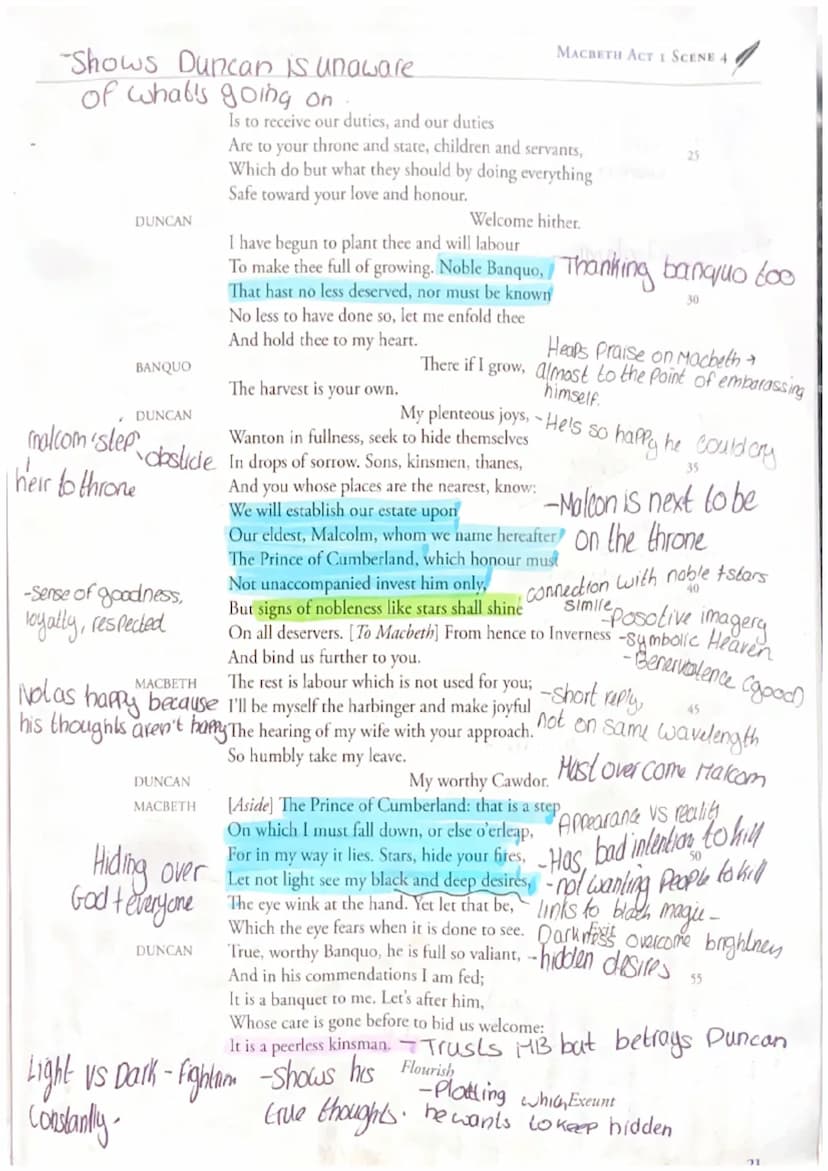 MACBETH ACT 1 SCENE 4
-Shows Duncan is unaware
of what's going on.
Is to receive our duties, and our duties
Are to your throne and state, children and servants, 25
Which do but what they should by doing everything
Safe toward your love and honour.
DUNCAN Welcome hither.
I have begun to plant thee and will labour
To make thee full of growing. Noble Banquo, Thanking banquo too
That hast no less deserved, nor must be known 30
No less to have done so, let me enfold thee
And hold thee to my heart.
Heaps Praise on Macbeth →
BANQUO There if I grow, almost to the point of embarassing
The harvest is your own. himself.
DUNCAN My plenteous joys, -He's so happy he could cry
malcom 'step' obslicle Wanton in fullness, seek to hide themselves
heir to throne In drops of sorrow. Sons, kinsmen, thanes, 35
And you whose places are the nearest, know:
We will establish our estate upon -Malcon is next to be
Our eldest, Malcolm, whom we name hereafter on the throne
The Prince of Cumberland, which honour must
Not unaccompanied invest him only, connection with noble + stars 40
-sense of goodness, But signs of nobleness like stars shall shine simile -posotive imagery
loyally, respected On all deservers. [To Macbeth] From hence to Inverness -symbolic Heaven
And bind us further to you. -Benervolence (good)
MACBETH The rest is labour which is not used for you; -short reply,
Not as happy because I'll be myself the harbinger and make joyful 45
his thoughts aren't happy The hearing of my wife with your approach. not on same wavelength
So humbly take my leave.
DUNCAN My worthy Cawdor. Must over come Malcom
MACBETH [Aside] The Prince of Cumberland: that is a step Appearance vs reality
On which I must fall down, or else o'erleap,
Hiding over For in my way it lies. Stars, hide your fires, -Has bad intention to kill 50
God + everyone Let not light see my black and deep desires, -not wanting People to kill
The eye wink at the hand. Yet let that be, links to black magic -
Which the eye fears when it is done to see. Darkness overcome brightness
DUNCAN True, worthy Banquo, he is full so valiant, -hidden desires
And in his commendations I am fed; 55
It is a banquet to me. Let's after him,
Whose care is gone before to bid us welcome:
It is a peerless kinsman. -Trusts MB but betrays Duncan
Flourish
Light vs Dark - -Shows his -Plotting which Exeunt
Constantly. true thoughts. he wants to keep hidden
21